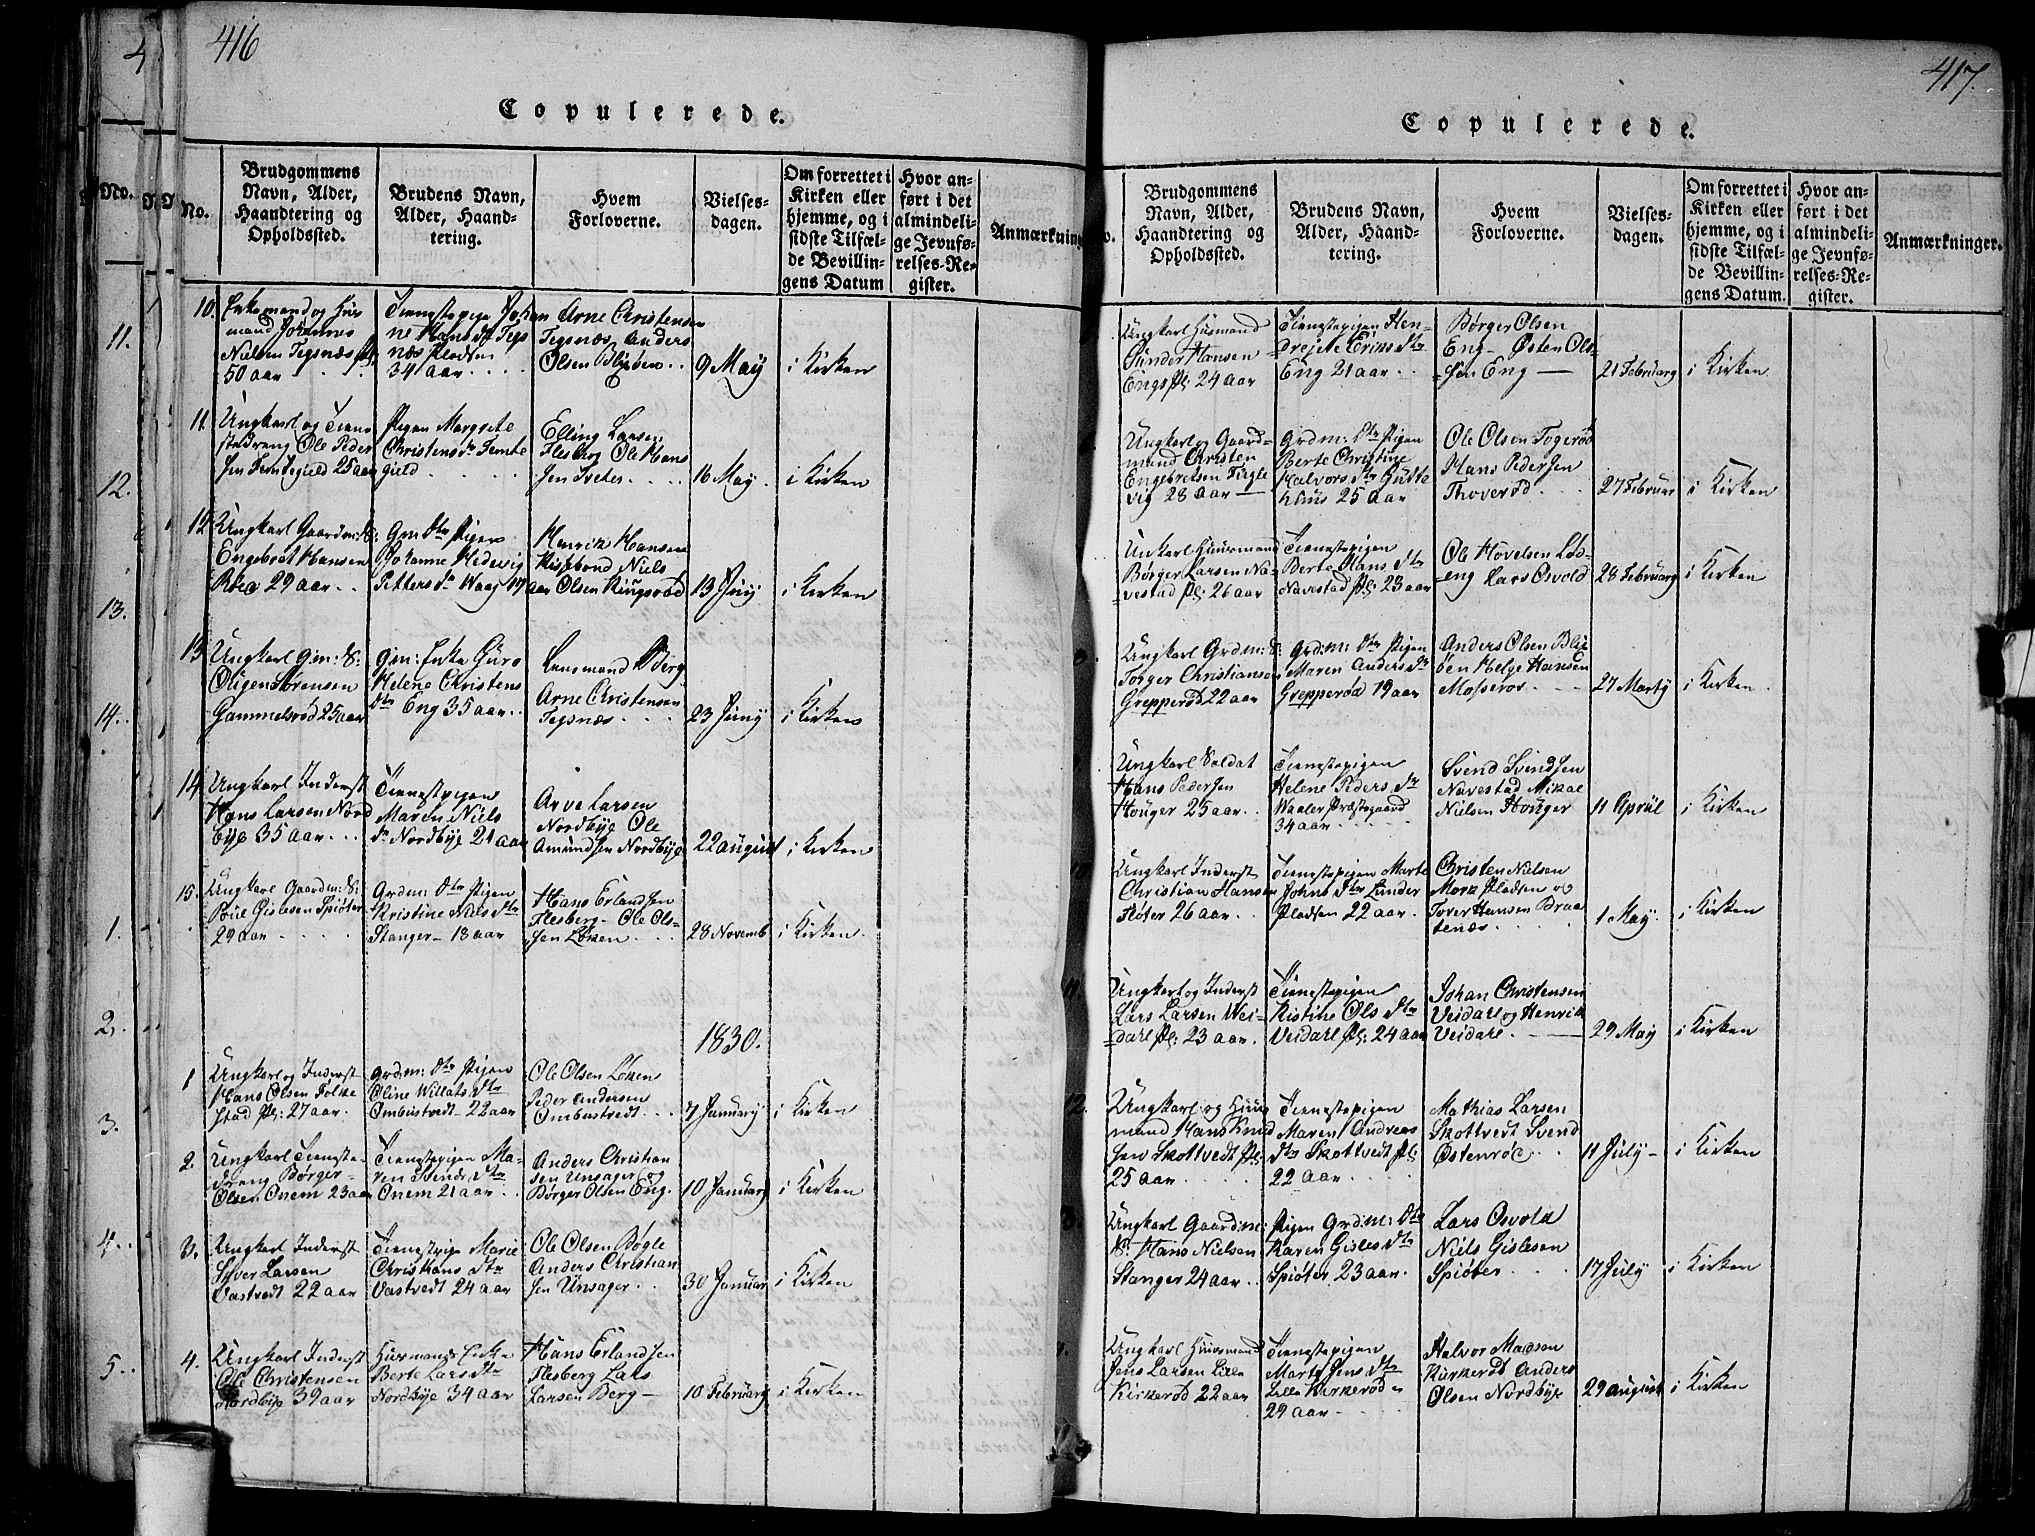 416
Copulerede.
No.
Brudgommens
Navn, Alder,
Haandtering og
Opholdssted.
Brudens Navn,
Alder, Haand-
tering.
Hvem
Forloverne.
Vielses-
dagen.
Om forrettet i
Kirken eller
hjemme, og i
sidste Tilfæl-
de Bevillin-
gens Datum
Hvor an-
ført i det
almindeli-
ge Jevnfø-
relses-Re-
gister.
Anmærkning
10.
Enkemand og
mand Johannes
Nielsen Tegsnæs
50 aar
Tienestepige Johan
ne Hans Dtr Tegs
næs Pladsen
34 aar
Arne Christensen
Tegsnæs Anders
Olsen
9 May
i Kirken
11.
Ungkarl og Tiene
stedreng Ole Peder
sen Femtegield 25 aar
Pigen Margrete
Christens Dr Femte
gield
Elling Larsen
Flesberg Ole Hans
sen Sveter
16 May
i Kirken
12.
Ungkarl Gaardm: S:
Engebret Hansen
29 aar
Gm Dtr Pigen
Johanne Hedevig
Petters Dr Waag 17 aar
Henrik Hansen
Niels
Olsen Ringsrød
13 Juny
i Kirken
13.
Ungkarl Gm: S:
Sørensen
Gammelsrød 25 aar
Gm: Enke Guro
Helene Christens
Dtr Eng 35 aar
Lensmand Berg
Arne Christensen
Tegsnæs
23 Juny
i Kirken
14.
Ungkarl Inderst
Hans Larsen Nord
bye 35 aar
Tienestepigen
Maren Niels
Dr Nordbye 21 aar
Arve Larsen
Nordbye Ole
Amundsen Nordbye
22 august
i Kirken
15.
Ungkarl Gaardm: S:
Poul Gislesen Spiøter
29 aar
Grdm: Dtr Pigen
Kristine Niels Dtr
Stanger 18 aar
Hans Erlandsen
Flesberg Ole Ols-
sen Løken
28 Novemb
i Kirken
1830.
1
Ungkarl og Inderst
Hans Olsen Folke
stad Pl: 27 aar
Grdm: Dtr Pigen
Oline Willats Dtr
Ombustvedt 22 aar
Ole Olsen Løken
Peder Andersen
Ombustvedt
7 January
i Kirken
2.
Ungkarl Tieneste-
dreng Børger
Olsen Onem 23 aar
Tienestepigen Ma-
ren Svends Dtr
Onem 21 aar
Anders Christian
sen Unsager og
Børger Olsen Eng.
10 January
i Kirken
3.
Ungkarl Inderst
Siver Larsen
Vastvedt 22 aar
Tienestepige Marie
Christians Dtr
Vastvedt 24 aar
Ole Olsen Bøgle
Anders Christian
sen Unsager
30 Januar
i Kirken
4.
Ungkarl Inderst
Ole Christensen
Nordbye 39 aar
Huusmands Enke
Berte Lars Dtr
Nordbye 34 aar
Hans Erlandsen
Flesberg Lars
Larsen Berg
10 February
i Kirken
417.
Copulerede.
Brudgommens
Navn, Alder,
Haandtering og
Opholdssted.
Brudens Navn,
Alder, Haand-
tering.
Hvem
Forloverne.
Vielses-
dagen.
Om forrettet i
Kirken eller
hjemme, og i
sidste Tilfæl-
de Bevillin-
gens Datum.
Hvor an-
ført i det
almindeli-
ge Jevnfø-
relses-Re-
gister.
Anmærkninger.
Ungkarl Husmand
Gunder Hansen
Engs Pl: 24 aar
Tienestepigen Hen-
Eriks Dtr
Eng 21 aar
Børger Olsen
Eng Østen Ols-
sen Eng
21 February
i Kirken
Ungkarl og Gaard-
mand Christen
Engebretsen Fugle
vig 28 aar
Grdm: Dtr Pigen
Berte Christine
Halvors Dtr Gutte
huus 25 aar
Ole Olsen Togerød
Hans Pedersen
Thoverød
27 Februar
i Kirken
Unkarl Huusmand
Børger Larsen Na-
vestad Pl: 26 aar
Tienestepigen
Berte Hans Dtr
Navestad Pl: 23 aar
Ole Hovelsen Løs-
eng Lars Osvold
28 February
i Kirken
8
Ungkarl Grdm: S:
Torger Christiansen
Grepperød 22 aar
Grdm: Dtr Pigen
Maren Anders Dr
Grepperød 19 aar
Anders Olsen Blix
øen Helge Hansen
Mosserør
27 Marty
i Kirken
9
Ungkarl Soldat
Hans Pedersen
Houger 25 aar
Tienestepigen
Helene Peders Dtr
Waaler Præstegaard
34 aar
Svend Svendsen
Navestad Mikal
Nielsen Houger
11 April
i Kirken
10
Ungkarl Inderst
Christian Hansen
Fløter 26 aar
Tienestepigen Marte
Johns Dtr Lunder
Pladsen 22 aar
Christen Nielsen
Mork Pladsen og
Tover Hansen Braa
tenæs
1 May
i Kirken
11.
Ungkarl og Inderst
Lars Larsen Wei-
darl Pl: 23 aar
Tienestepigen
Kistine Ols Dtr
Veidarl Pl: 24 aar
Johan Christensen
Veidarl og Henrik
Veidarl
29 May
i Kirken
12.
Ungkarl og Huus
mand Hans Knud
sen Skottvedt Pl:
25 aar
Tienestepigen
Maren Andreas
Dtr Skottvedt Pl:
22 aar
Mathias Larsen
Skottvedt Svend
Østenrød
11 July
i Kirken
Ungkarl Gaardm:
S: Hans Nielsen
Stanger 24 aar
Pigen Grdm: Dtr
Karen Gisles Dtr
Spiøter 23 aar
Lars Osvold
Niels Gislesen
Spiøter
17 July
i Kirken
Ungkarl Huusmand
Jens Larsen Lille
Kirkerød 22 aar
Tienestepigen
Marte Jens Dtr
Lille Kirkerød
29 aar
Halvor Madsen
Kirkerød Anders
Olsen Nordbye
29 august
i Kirken
No.
11.
12.
13.
14.
1.
2.
3.
4.
5.